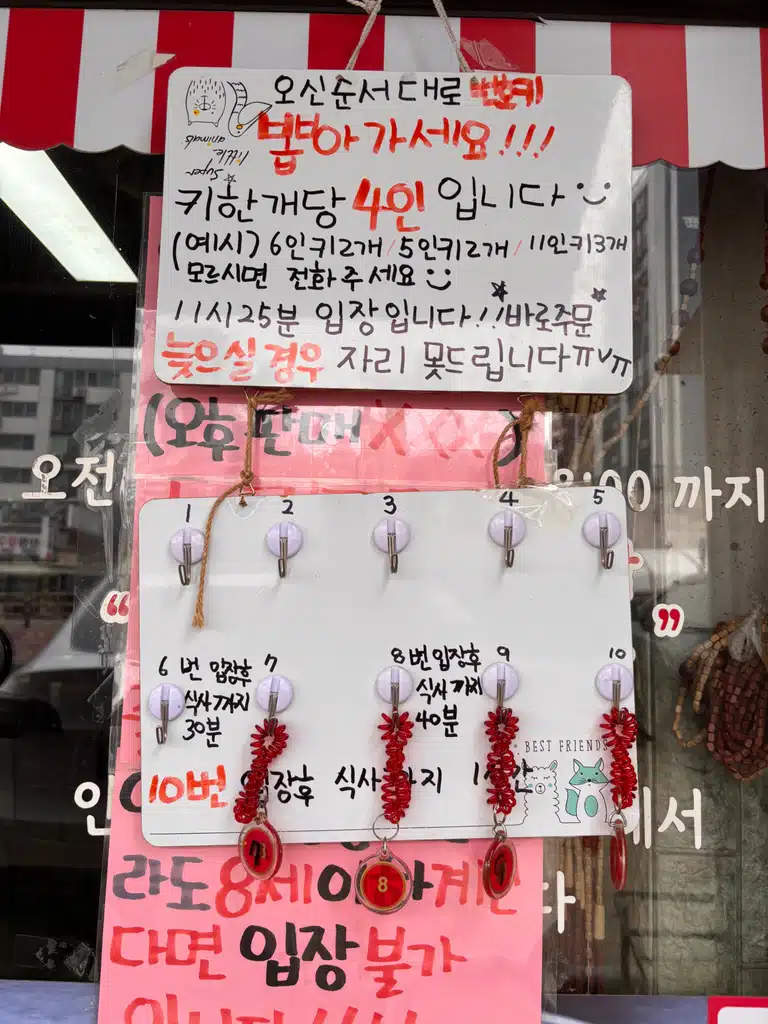 오신순서대로 번호키
뽑아가세요!!!
super
little
animals
키한개당 4인 입니다
(예시) 6인키2개/5인키2개/11인키3개
모르시면 전화주세요
11시25분 입장입니다!! 바로주문
늦으실경우 자리 못드립니다ㅠvㅠ
(오후 판매 XXX)
오전
8:00 까지
1 2 3 4 5
“ ”
6번 입장후
식사까지
30분
7
8번 입장후
식사까지
40분
9
10
BEST FRIENDS
10번 입장후 식사까지
7
8
9
에서
라도 8세
다면 입장 불가
입니다!!!